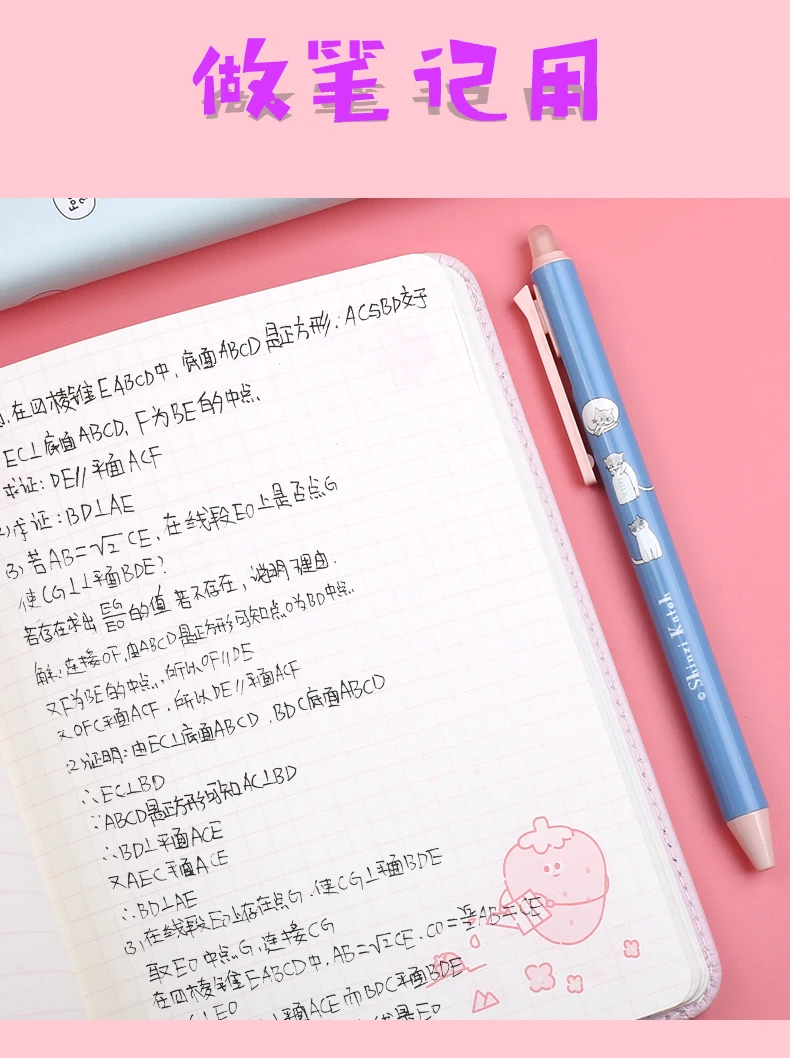 做笔记用
在四棱锥EABCD中,底面ABCD是正方形,AC与BD交于
EC⊥底面ABCD,F为BE的中点.
求证:DE∥平面ACF
求证:BD⊥AE
3)若AB=√2CE,在线段EO上是否点G
使CG⊥⊥平面BDE?
若存在求出EG/EO的值 若不存在,说明理由.
解:连接OF,由ABCD是正方形可知点O为BD中点.
又F为BE的中点,所以OF∥DE
又OFC平面ACF,所以DE∥平面ACF
(2)证明:由EC⊥底面ABCD,BDC底面ABCD
∴EC⊥BD
∵ABCD是正方形可知AC⊥BD
∴BD⊥平面ACE
又AEC平面ACE
∴BD⊥AE
(3)在线段EO上存在点G,使CG⊥平面BDE
取EO中点G,连接CG
在四棱锥EABCD中,AB=√2CE,CO=√2/2AB=CE
⊥EO
平面ACE而BDC平面BDE
是EO
Shinzi Katoh